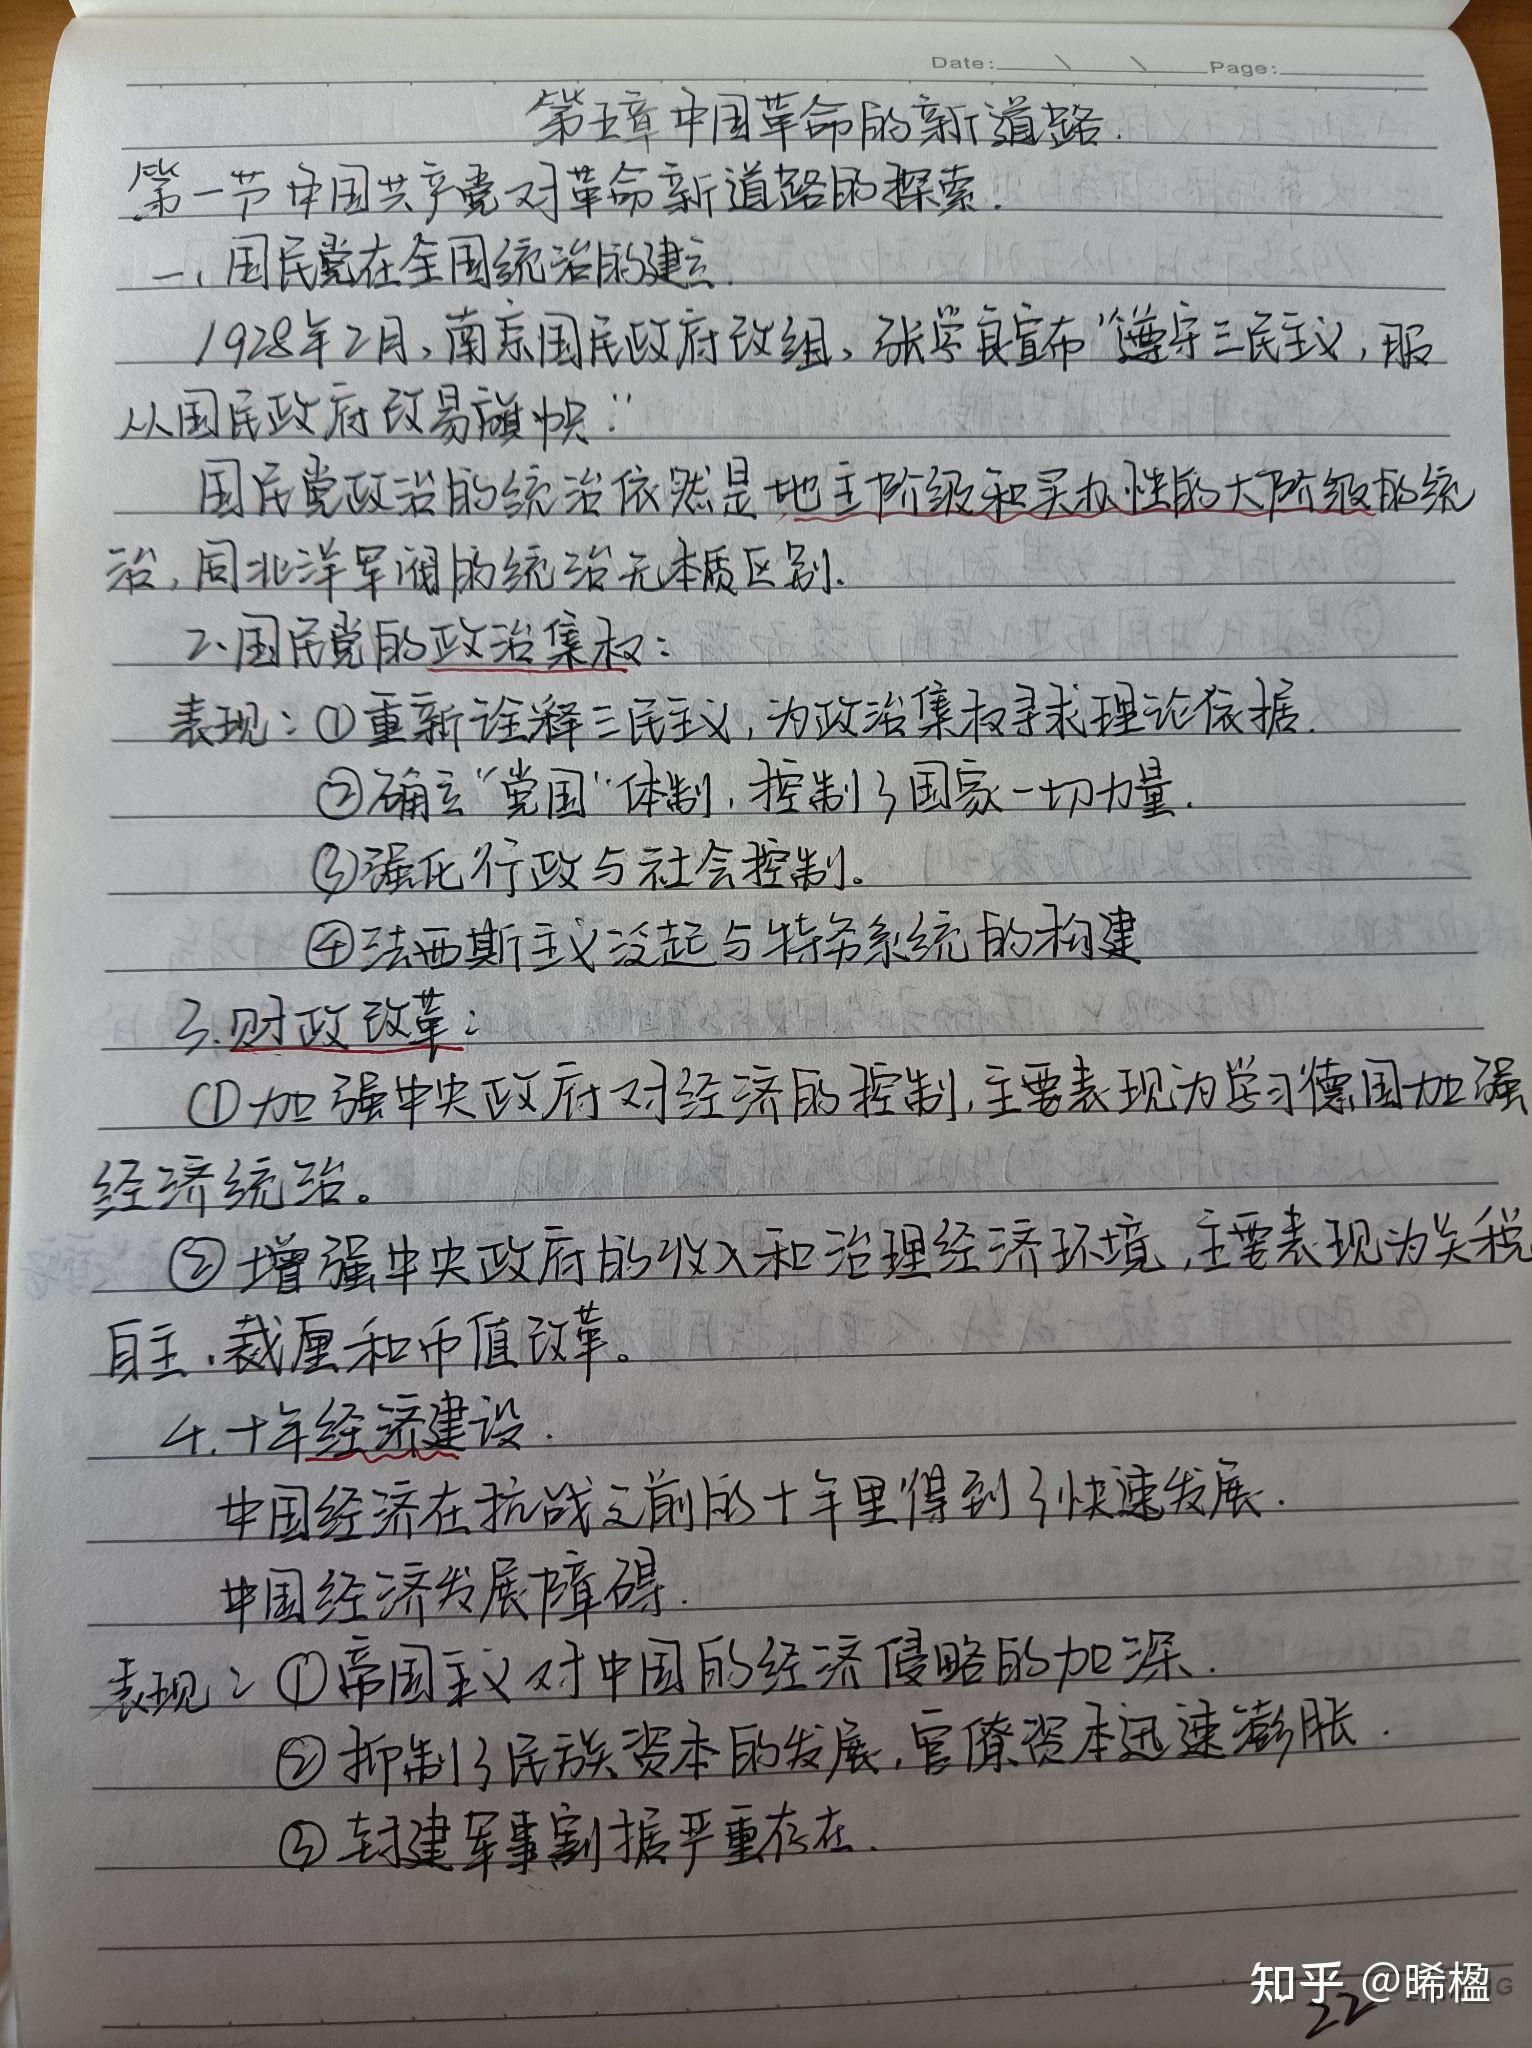 Date: \ \ Page:
第五章中国革命的新道路.
第一节中国共产党对革命新道路的探索.
一、国民党在全国统治的建立.
1928年2月,南京国民政府改组,张学良宣布“遵守三民主义,服
从国民政府改易旗帜.”
国民党政治的统治依然是地主阶级和买办性的大阶级的统
治,同北洋军阀的统治无本质区别.
2.国民党的政治集权:
表现:①重新诠释三民主义,为政治集权寻求理论依据.
②确立“党国”体制,控制了国家一切力量.
③强化行政与社会控制。
④法西斯主义没起与特务系统的构建
3.财政改革:
①加强中央政府对经济的控制,主要表现为学习德国加强
经济统治。
②增强中央政府的收入和治理经济环境,主要表现为关税
自主、裁厘和币值改革。
4.十年经济建设.
中国经济在抗战之前的十年里得到了快速发展.
中国经济发展障碍.
表现:①帝国主义对中国的经济侵略的加深.
②抑制了民族资本的发展,官僚资本迅速膨胀.
③封建军事割据严重存在.
知乎 @晞楹
22